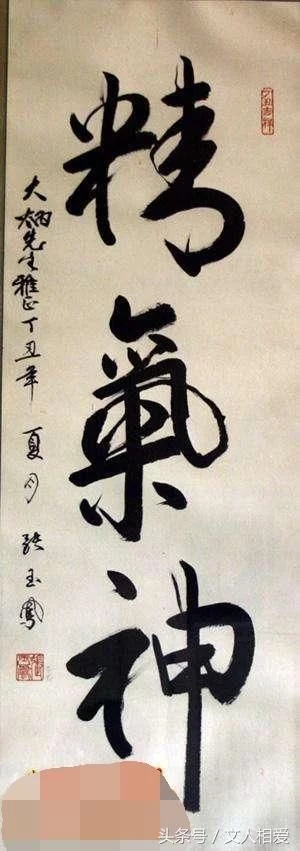 精氣神
大炳先生雅正丁丑年 夏月 張玉鳳
头条号／文人相爱